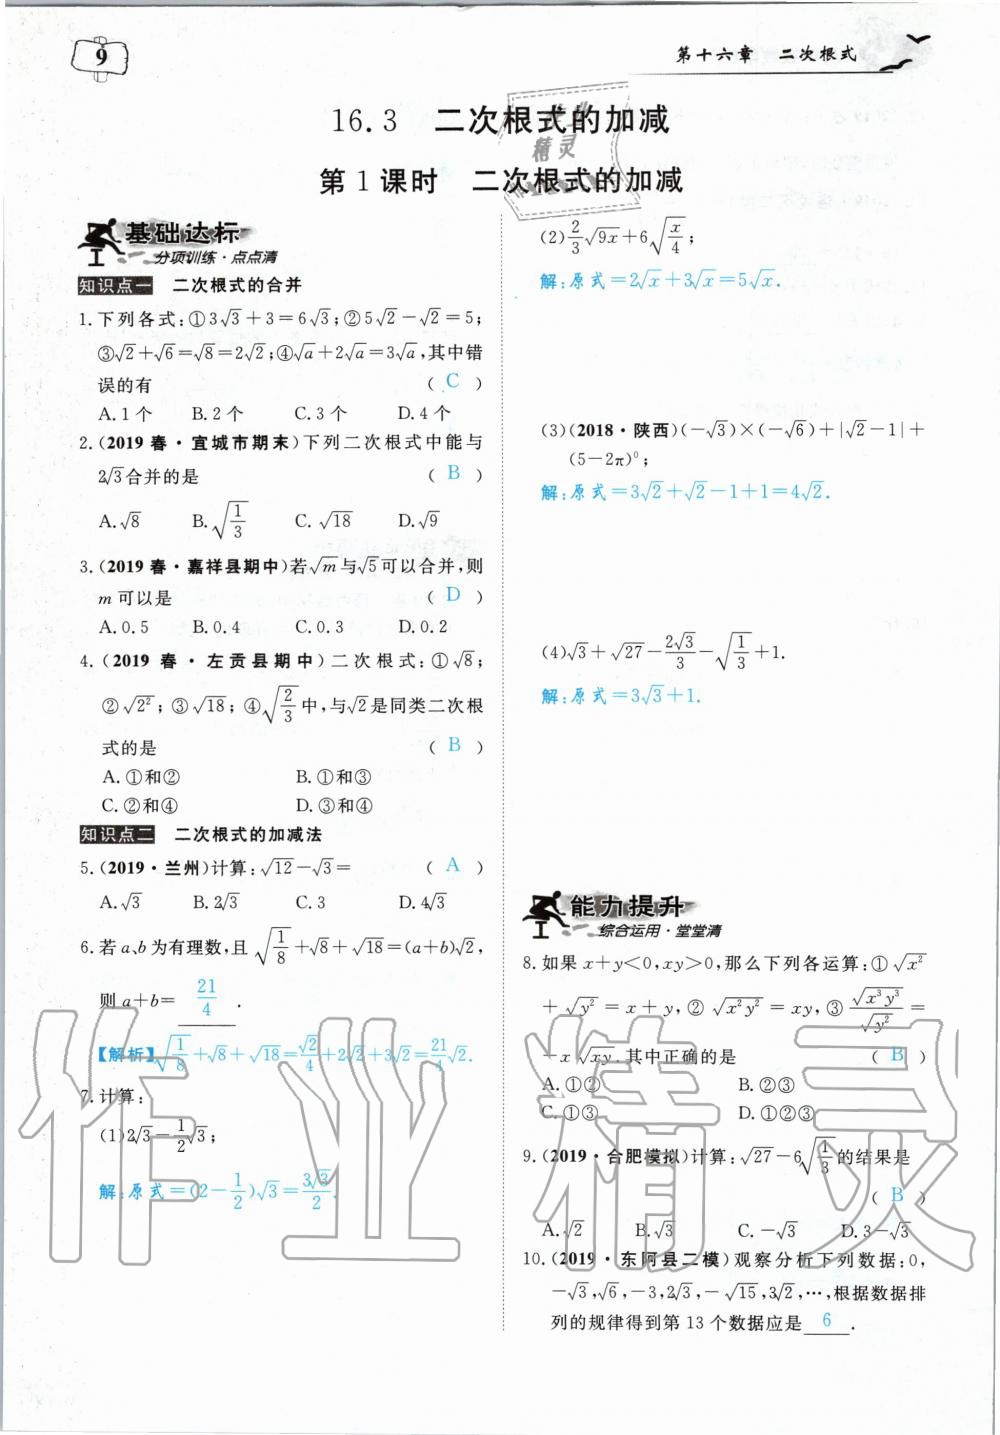 9
第十六章 二次根式
16.3 二次根式的加减
第1课时 二次根式的加减
基础达标
分项训练·点点清
知识点一 二次根式的合并
1.下列各式:①3√3+3=6√3;②5√2-√2=5;
③√2+√6=√8=2√2;④√a+2√a=3√a,其中错
误的有 ( C )
A.1个 B.2个 C.3个 D.4个
2.(2019春·宜城市期末)下列二次根式中能与
2√3合并的是 ( B )
A.√8 B.√(1/3) C.√18 D.√9
3.(2019春·嘉祥县期中)若√m与√5可以合并,则
m可以是 ( D )
A.0.5 B.0.4 C.0.3 D.0.2
4.(2019春·左贡县期中)二次根式:①√8;
②√2²;③√18;④√(2/3)中,与√2是同类二次根
式的是 ( B )
A.①和② B.①和③
C.②和④ D.③和④
知识点二 二次根式的加减法
5.(2019·兰州)计算:√12-√3= ( A )
A.√3 B.2√3 C.3 D.4√3
6.若a、b为有理数,且√(1/8)+√8+√18=(a+b)√2,
则a+b= 21/4 .
【解析】√(1/8)+√8+√18=√2/4+2√2+3√2=21/4√2.
7.计算:
(1)2√3-1/2√3;
解:原式=(2-1/2)√3=3√3/2.
(2)2/3√9x+6√(x/4);
解:原式=2√x+3√x=5√x.
(3)(2018·陕西)(-√3)×(-√6)+|√2-1|+
(5-2π)⁰;
解:原式=3√2+√2-1+1=4√2.
(4)√3+√27-2√3/3-√(1/3)+1.
解:原式=3√3+1.
能力提升
综合运用·堂堂清
8.如果x+y<0,xy>0,那么下列各运算:①√x²
+√y²=x+y,②√x²y²=xy,③√x³y³/√y²=
-x√xy.其中正确的是 ( B )
A.①② B.②③
C.①③ D.①②③
9.(2019·合肥模拟)计算:√27-6√(1/3)的结果是
( B )
A.√2 B.√3 C.-√3 D.3-√3
10.(2019·东阿县二模)观察分析下列数据:0,
-√3,√6,-3,2√3,-√15,3√2,…,根据数据排
列的规律得到第13个数据应是 6 .
作业精灵